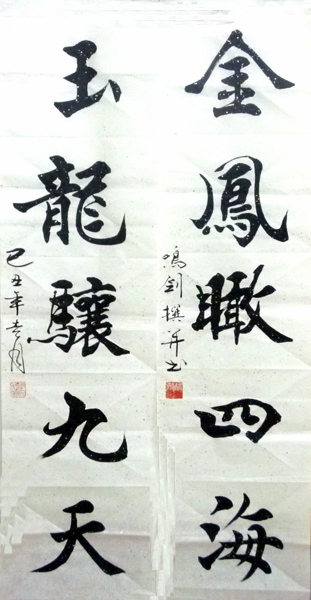 金鳳瞰四海
鳴劍撰并书
玉龍驤九天
己丑年吉月